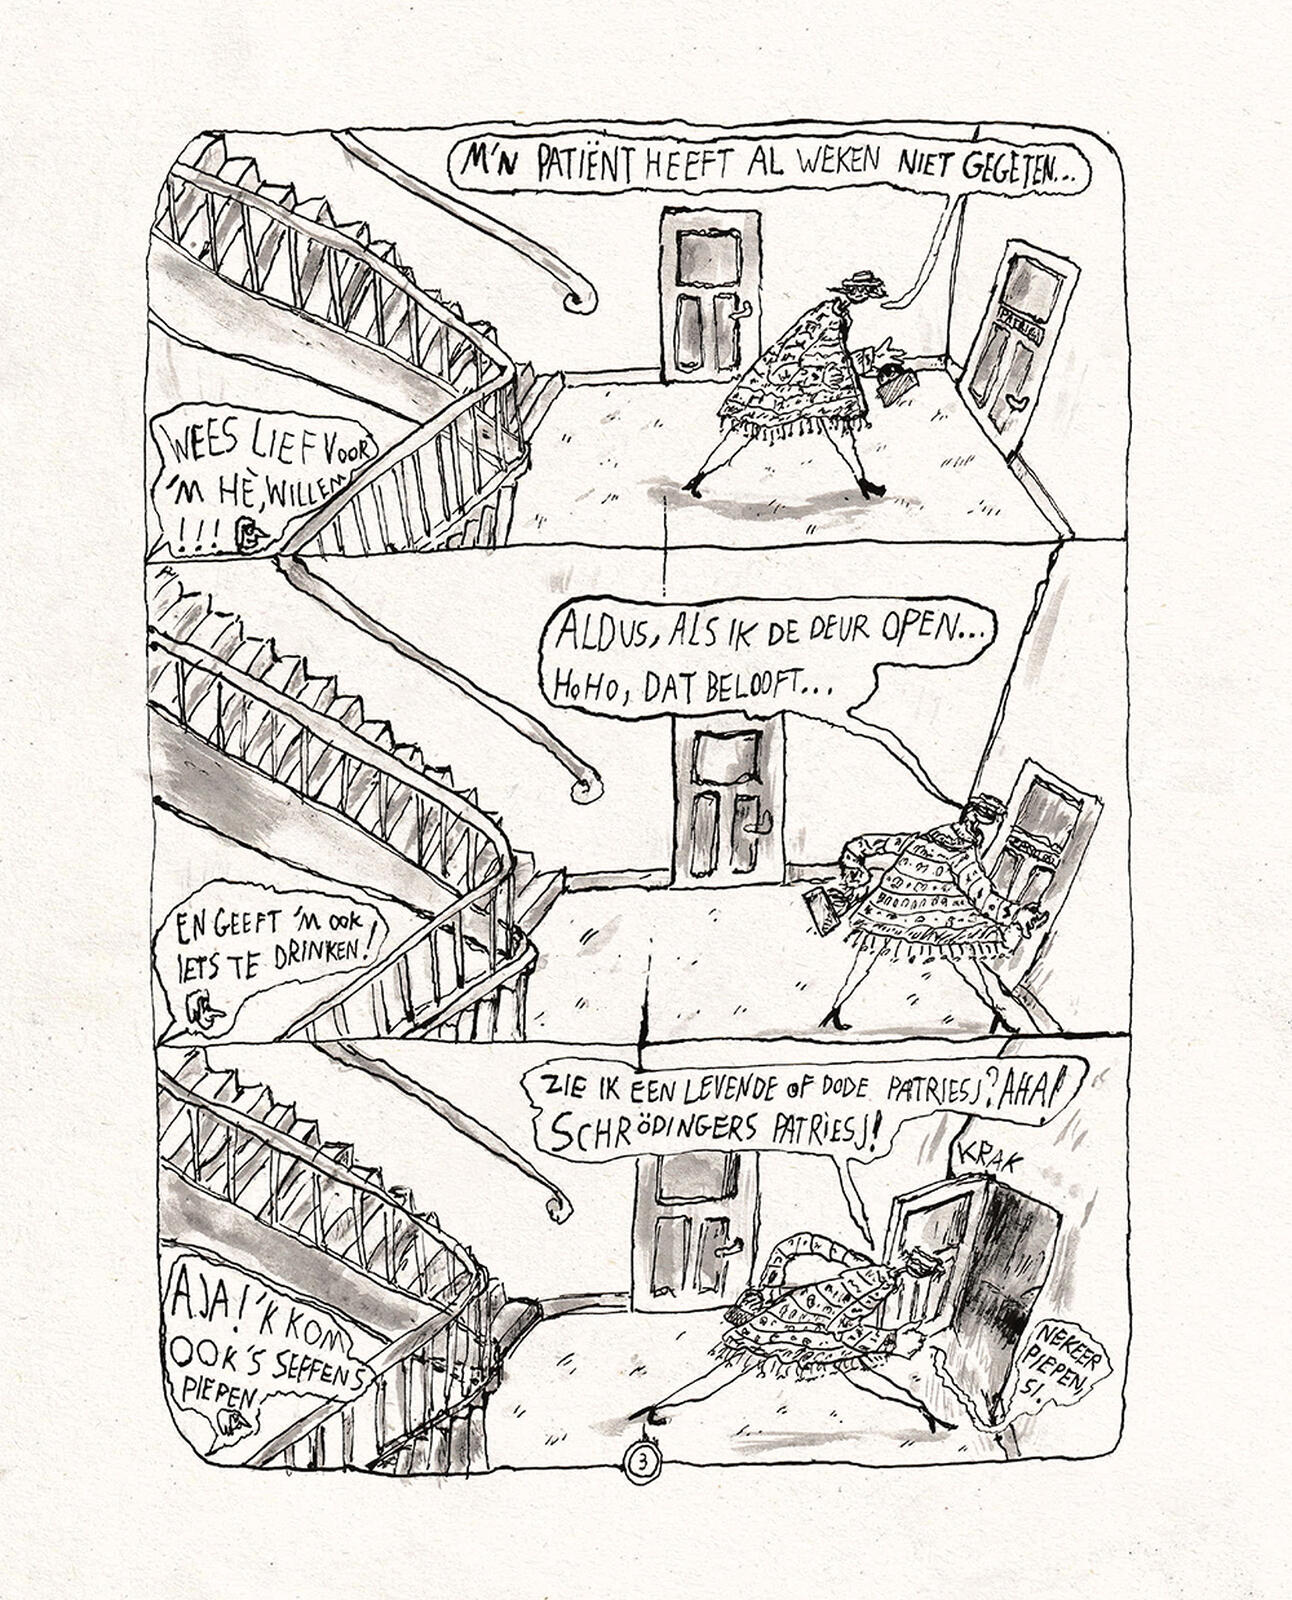 M'N PATIËNT HEEFT AL WEKEN NIET GEGETEN...
WEES LIEF VOOR
'M HÈ, WILLEM
!!!
ALDUS, ALS IK DE DEUR OPEN...
HOHO, DAT BELOOFT...
EN GEEFT 'M OOK
IETS TE DRINKEN!
ZIE IK EEN LEVENDE OF DODE PATRIESJ? AHA!
SCHRÖDINGERS PATRIESJ!
KRAK
AJA! 'K KOM
OOK 'S SEFFENS
PIEPEN
NEKEER
PIEPEN,
SI.
3